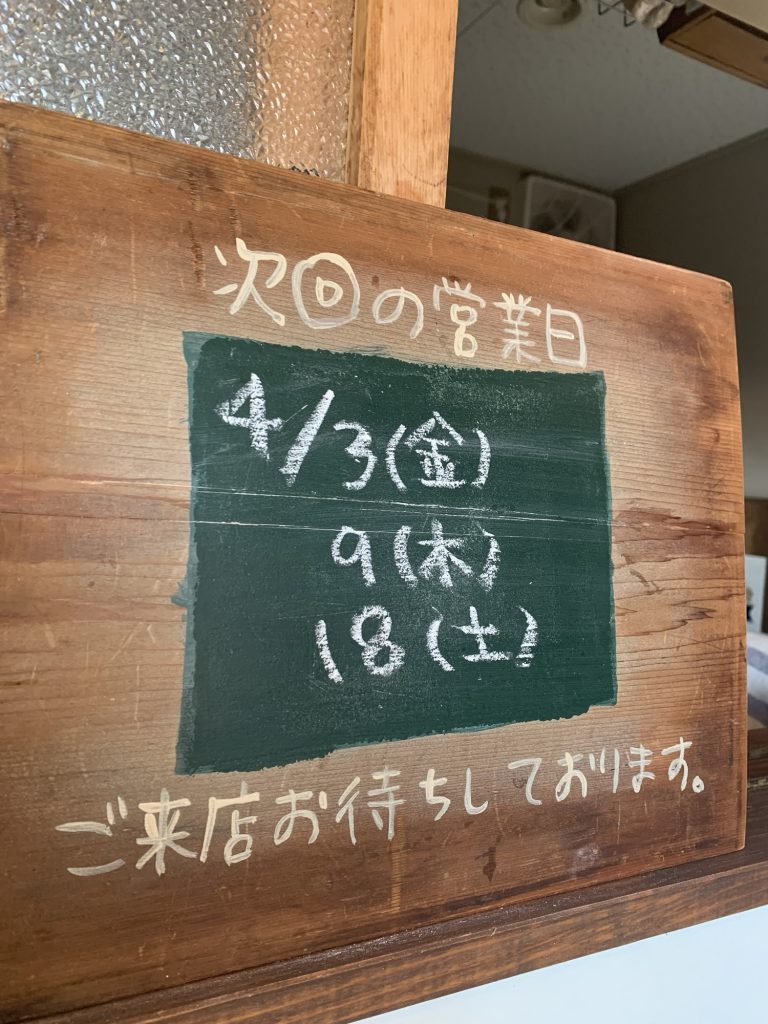 次回の営業日
4/3(金)
9(木)
18(土)
ご来店お待ちしております。